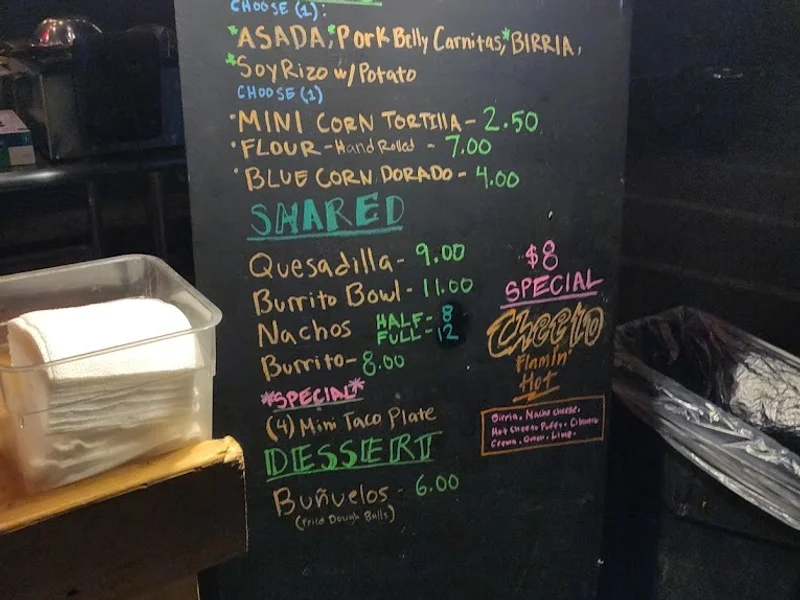 CHOOSE (1):
*ASADA, *Pork Belly Carnitas, *BIRRIA,
*SoyRizo w/ Potato
CHOOSE (1)
·MINI CORN TORTILLA - 2.50
·FLOUR - Hand Rolled - 7.00
·BLUE CORN DORADO - 4.00
SHARED
Quesadilla - 9.00
Burrito Bowl - 11.00
Nachos HALF - 8
FULL - 12
Burrito - 8.00
*SPECIAL*
(4) Mini Taco Plate
DESSERT
Buñuelos - 6.00
(Fried Dough Balls)
$8
SPECIAL
Cheeto
Flamin'
Hot
Birria. Nacho cheese.
Hot Cheeto Puffs. Cilantro
Crema. Onion. Lime.